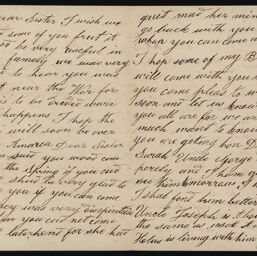 Dear Sister I wish we
some of you fruit it
be very useful in
family we was very
to hear you was
near the War for
is to be dread where
happens I hop the
will soon be over
Dear Sister
said you wood com
the Spring if you can
very glad to
you if you can come
was very
you can not come
to late hend for she had
quiet mad her min
go back with you
when you can come
I hop some of my B
will come with you
you come pleas to w
soon and let us know
you all are for we are
much indend to know
you are geting hon D
Sarah Uncle George
porely and I ham g
see him morrow
I shal find him better
Uncle Joseph
the same as
is living with him